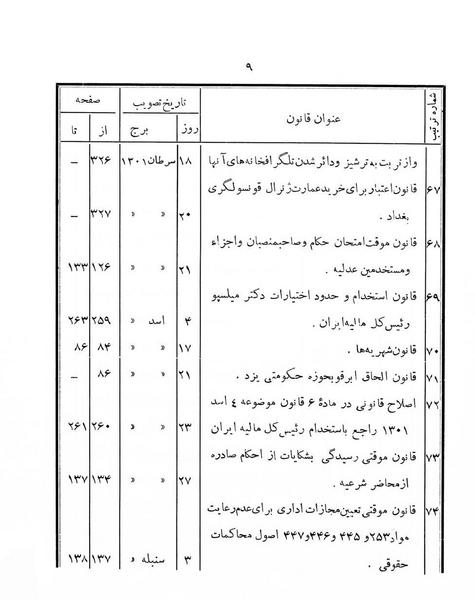 ۹
شماره ترتیب عنوان قانون تاریخ تصویب صفحه
روز برج از تا
واز تربت به ترشیز ودائر شدن تلگرافخانه‌های آنها ۱۸ سرطان ۱۳۰۱ ۳۲۶ –
۶۷ قانون اعتبار برای خرید عمارت ژنرال قونسولگری
بغداد . ۲۰ » » ۳۲۷ –
۶۸ قانون موقت امتحان حکام وصاحبمنصبان واجزاء
ومستخدمین عدلیه . ۲۱ » » ۱۲۶ ۱۳۳
۶۹ قانون استخدام و حدود اختیارات دکتر میلسپو
رئیس کل مالیه ایران . ۴ اسد » ۲۵۹ ۲۶۳
۷۰ قانون شهریه‌ها . ۱۷ » » ۸۴ ۸۶
۷۱ قانون الحاق ابرقو بحوزه حکومتی یزد . ۲۱ » » ۸۶ –
۷۲ اصلاح قانونی در مادۀ ۶ قانون موضوعه ٤ اسد
۱۳۰۱ راجع باستخدام رئیس کل مالیه ایران ۲۳ » » ۲۶۰ ۲۶۱
۷۳ قانون موقتی رسیدگی بشکایات از احکام صادره
از محاضر شرعیه . ۲۷ » » ۱۳۴ ۱۳۷
۷۴ قانون موقتی تعیین مجازات اداری برای عدم رعایت
مواد ۲۵۳ و ۴۴۵ و ۴۴۶ و ۴۴۷ اصول محاکمات
حقوقی . ۳ سنبله » ۱۳۷ ۱۳۸